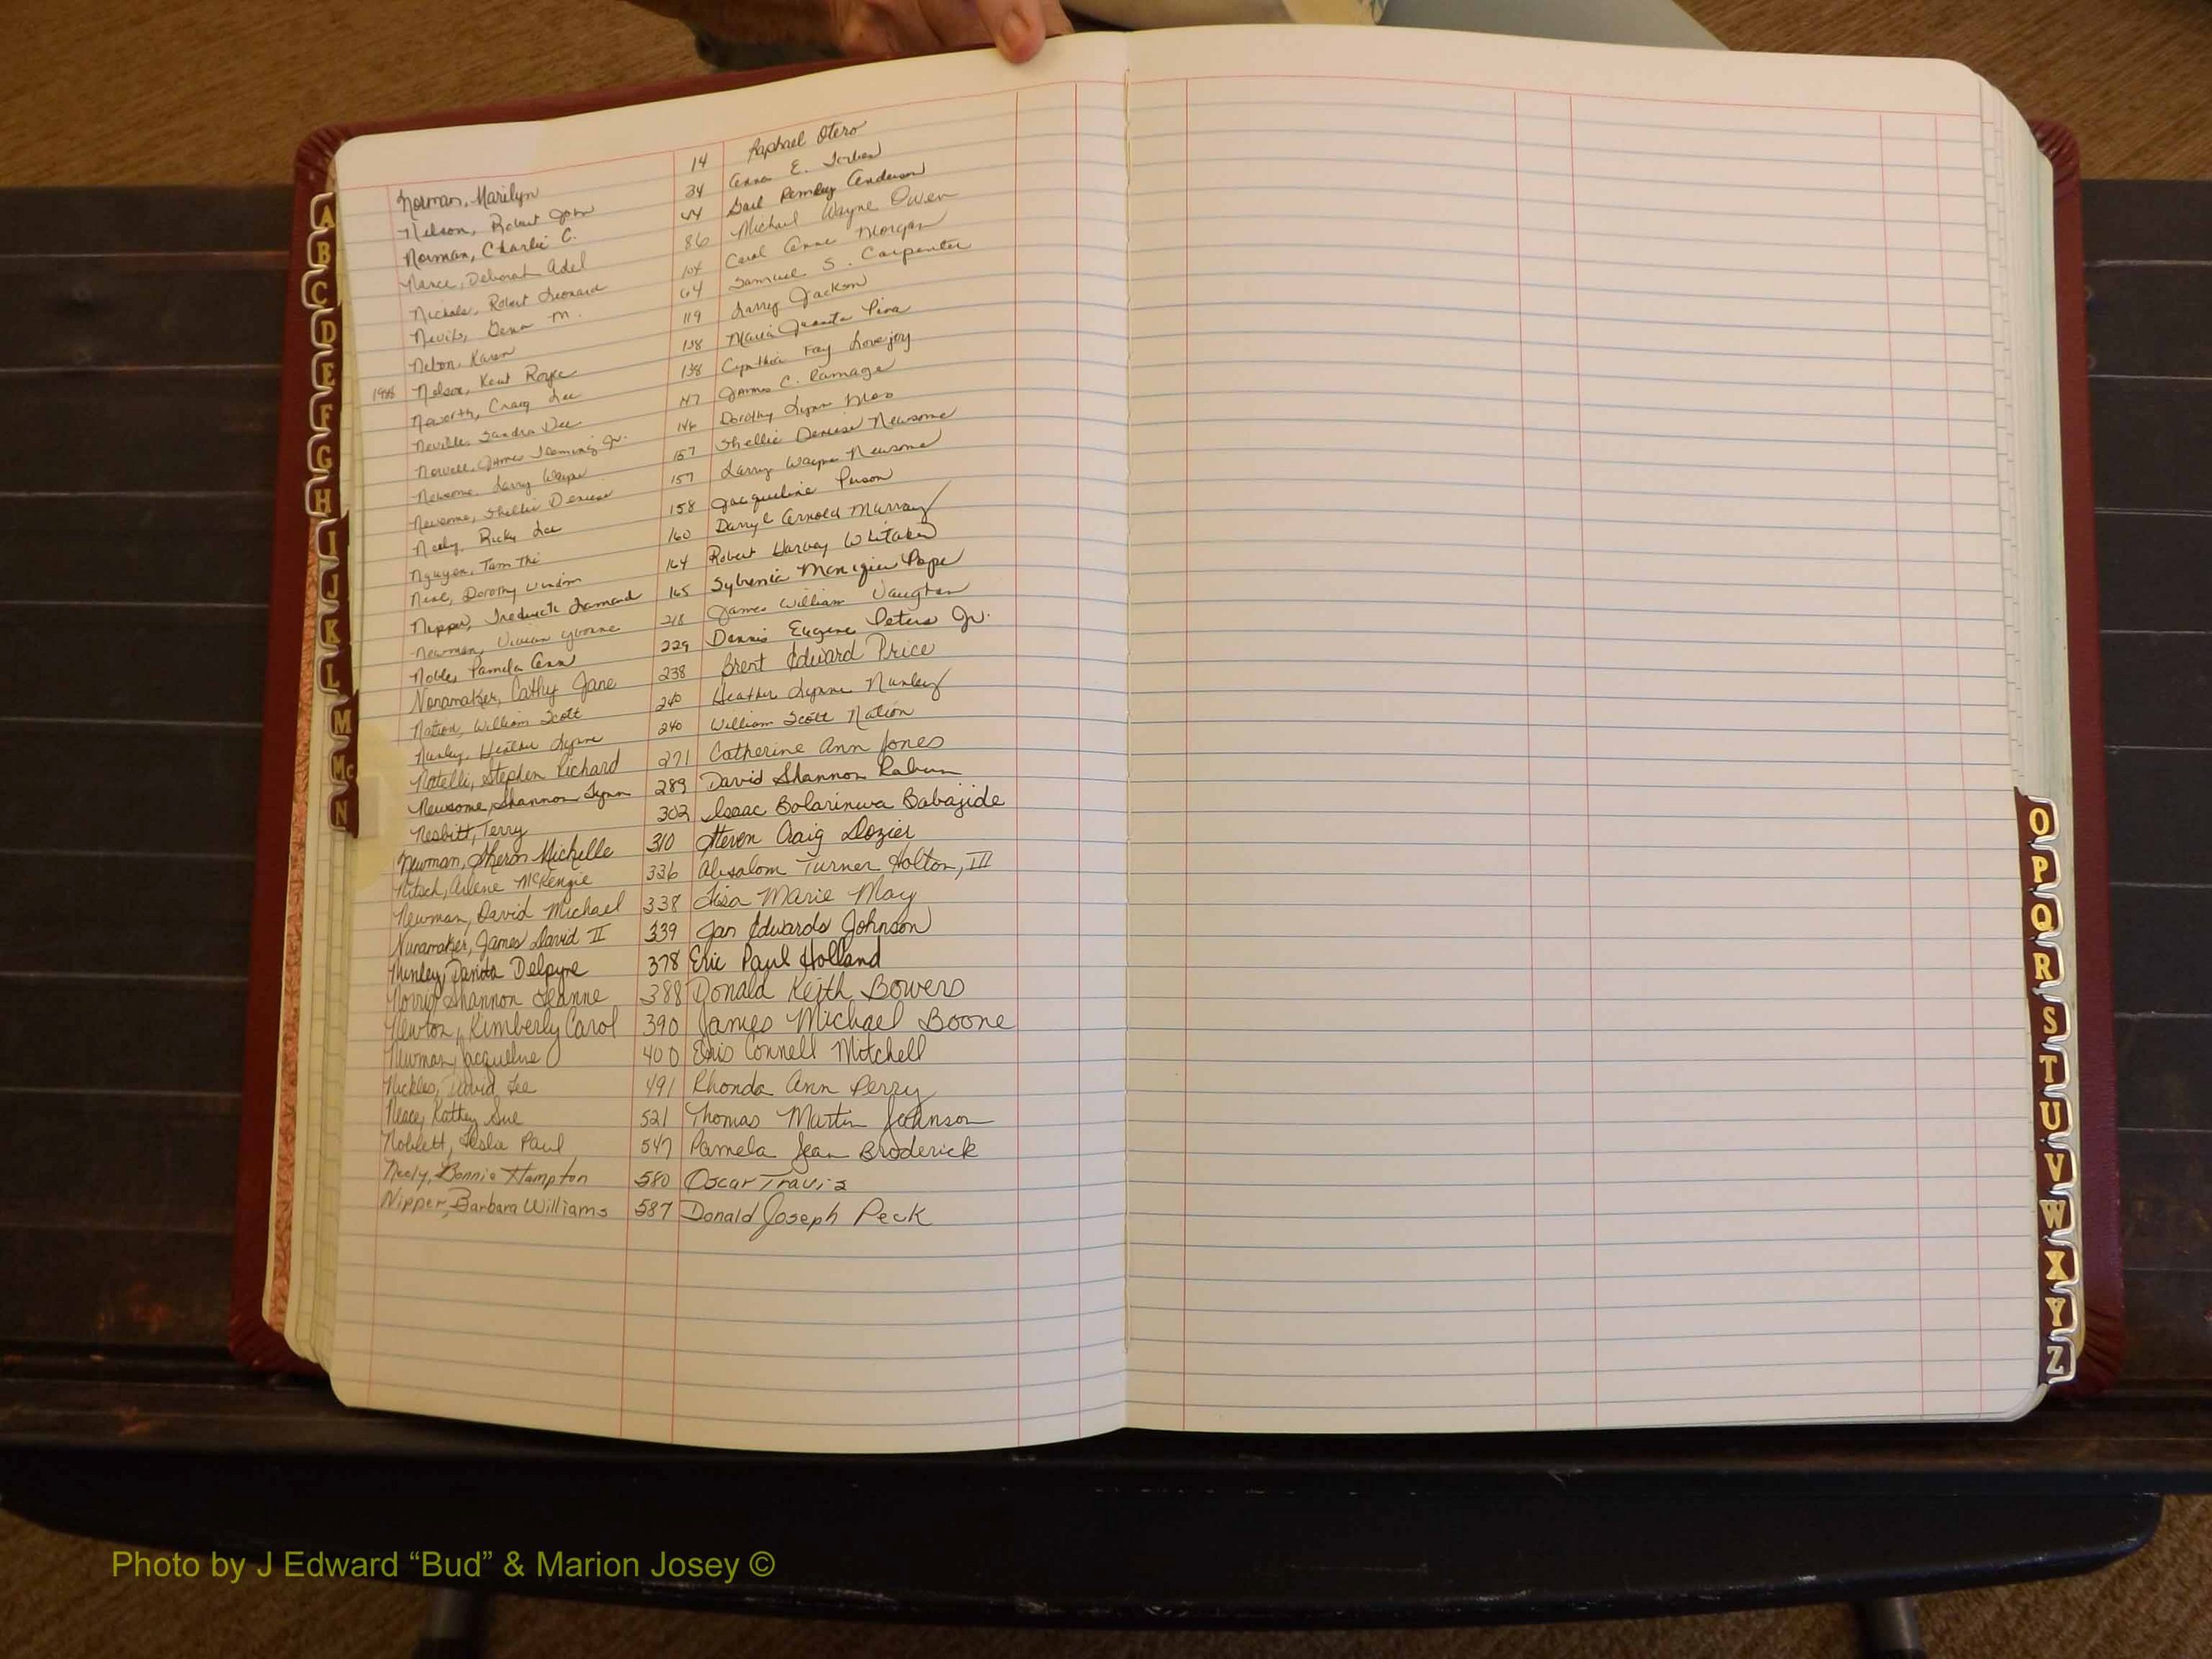 Norman, Marilyn 14 Raphael Otero
Nelson, Robert John 34 Anna E.
Norman, Charlie C. 44 Gail Pemley Anderson
Nance, Deborah Adel 86 Michael Wayne Owen
Nichols, Robert Leonard 104 Carol Anne Morgan
Nevils, Dena M. 64 Samuel S. Carpenter
Nelson, Karen 119 Larry Jackson
1988 Nelson, Kent Royce 138 Maria Juanita Pina
Neworth, Craig Lee 138 Cynthia Fay Lovejoy
Neville, Sandra Dee 147 James C. Ramage
Nowell, James Fleming Jr. 146 Dorothy Lynn
Newsome, Larry Wayne 157 Shellie Denise Newsome
Newsome, Shellie Denise 157 Larry Wayne Newsome
Neely, Ricky Lee 158 Jacqueline Pierson
Nguyen, Tam Thi 160 Darryl Arnold Murray
Neal, Dorothy 164 Robert Harvey Whitaker
Nipper, Frederick Lamond 165 Sylvenia Pope
Newman, Vivian Yvonne 218 James William Vaughan
Noble, Pamela Ann 229 Dennis Eugene Peters Jr.
Nunamaker, Cathy Jane 238 Brent Edward Price
Nation, William Scott 240 Heather Lynne Nunley
Nunley, Heather Lynne 240 William Scott Nation
Natelli, Stephen Richard 271 Catherine Ann Jones
Newsome, Shannon Lynn 289 David Shannon Rabun
Nesbitt, Terry 302 Isaac Bolarinwa Babajide
Newman, Sharon Michelle 310 Steven Craig Dozier
Nitsch, Arlene McKenzie 336 Absalom Turner Holton, III
Newman, David Michael 338 Lisa Marie May
Nunamaker, James David II 339 Jan Edwards Johnson
Nunley, Danita Delayne 378 Eric Paul Holland
Norris, Shannon Leanne 388 Donald Keith Bowers
Newton, Kimberly Carol 390 James Michael Boone
Newman, Jacqueline 400 Connell Mitchell
Nickles, David Lee 491 Rhonda Ann Perry
Neace, Kathey Sue 521 Thomas Martin Johnson
Noblett, Leslie Paul 547 Pamela Jean Broderick
Neely, Bonnie Hampton 580 Oscar Travis
Nipper, Barbara Williams 587 Donald Joseph Peck
A
B
C
D
E
F
G
H
I
J
K
L
M
Mc
N
O
P
Q
R
S
T
U
V
W
X
Y
Z
Photo by J Edward “Bud” & Marion Josey ©